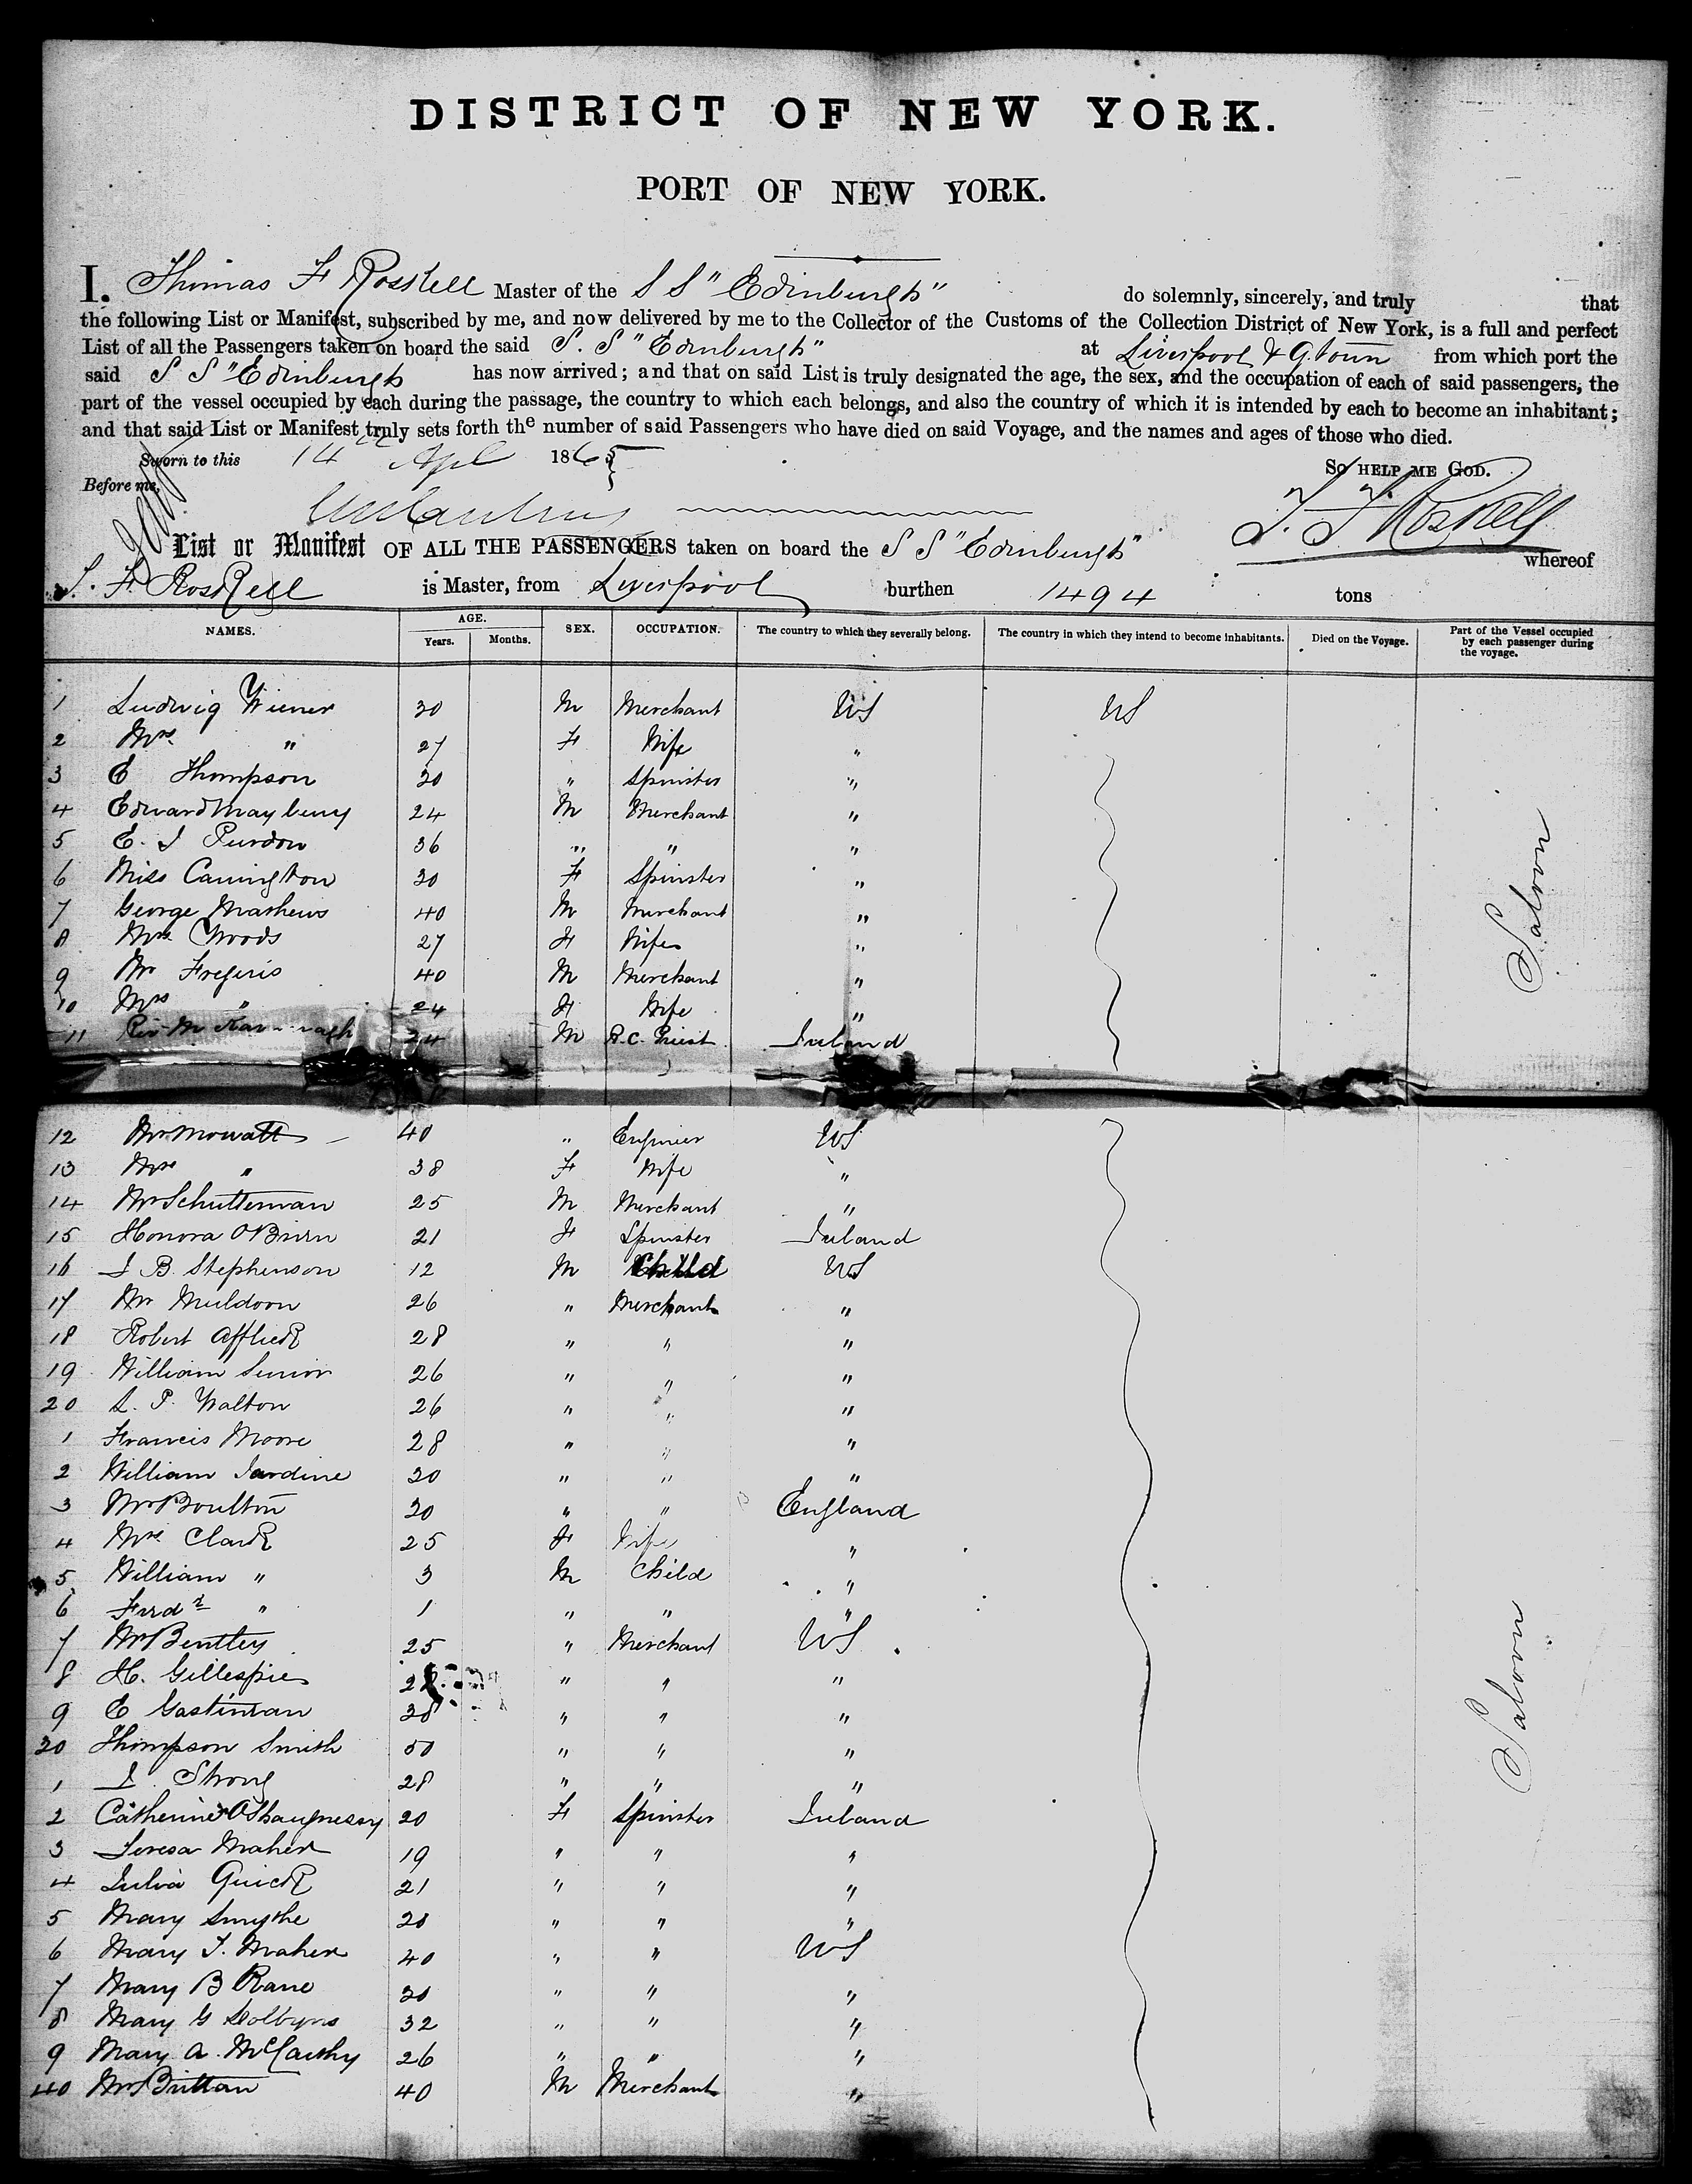 DISTRICT OF NEW YORK.
PORT OF NEW YORK.
I. Thomas F Rosskell Master of the S S "Edinburgh" do solemnly, sincerely, and truly that
the following List or Manifest, subscribed by me, and now delivered by me to the Collector of the Customs of the Collection District of New York, is a full and perfect
List of all the Passengers taken on board the said S. S "Edinburgh" at Liverpool & Q.town from which port the
said S S "Edinburgh has now arrived; and that on said List is truly designated the age, the sex, and the occupation of each of said passengers, the
part of the vessel occupied by each during the passage, the country to which each belongs, and also the country of which it is intended by each to become an inhabitant;
and that said List or Manifest truly sets forth the number of said Passengers who have died on said Voyage, and the names and ages of those who died.
Sworn to this 14th Apl 1865 So HELP ME GOD.
Before me, T. F. Roskell
List or Manifest OF ALL THE PASSENGERS taken on board the S S "Edinburgh" whereof
T. F. Rosskell is Master, from Liverpool burthen 1494 tons
NAMES. AGE. Years. Months. SEX. OCCUPATION. The country to which they severally belong. The country in which they intend to become inhabitants. Died on the Voyage. Part of the Vessel occupied by each passenger during the voyage.
1 Ludwig Wiener 30 M Merchant US US
2 Mrs " 27 F Wife "
3 E Thompson 30 " Spinster "
4 Edward Maybury 24 M Merchant "
5 E. J Purdon 36 " " "
6 Miss Cannington 30 F Spinster "
7 George Mathews 40 M Merchant "
8 Mrs Woods 27 F Wife "
9 Mr 40 M Merchant "
10 Mrs " 24 F Wife "
11 Rev M 24 M R.C. Priest Ireland
Saloon
12 Mr Mowatt 40 " Engineer US
13 Mrs " 38 F Wife "
14 Mr Schutteman 25 M Merchant "
15 Honora O'Brien 21 F Spinster Ireland
16 J B. Stephenson 12 M Child US
17 Mr Muldoon 26 " Merchant "
18 Robert Affleck 28 " " "
19 William Senior 26 " " "
20 L. P. Walton 26 " " "
1 Francis Moore 28 " " "
2 William Jardine 30 " " "
3 Mr Boulton 30 " " England
4 Mrs Clark 25 F Wife "
5 William " 3 M Child "
6 Ferdd " 1 " " "
7 Mr Bentley 25 " Merchant US
8 H. Gillespie " " "
9 E Gastineau 38 " " "
30 Thompson Smith 50 " " "
1 J. Strong 28 " " "
2 Catherine O'Shaugnessy 20 F Spinster Ireland
3 Teresa Maher 19 " " "
4 Julia Quick 21 " " "
5 Mary Smythe 20 " " "
6 Mary T. Maher 40 " " US
7 Mary B Kane 30 " " "
8 Mary G 32 " " "
9 Mary A. McCarthy 26 " " "
40 Mr Brittan 40 M Merchant "
Saloon